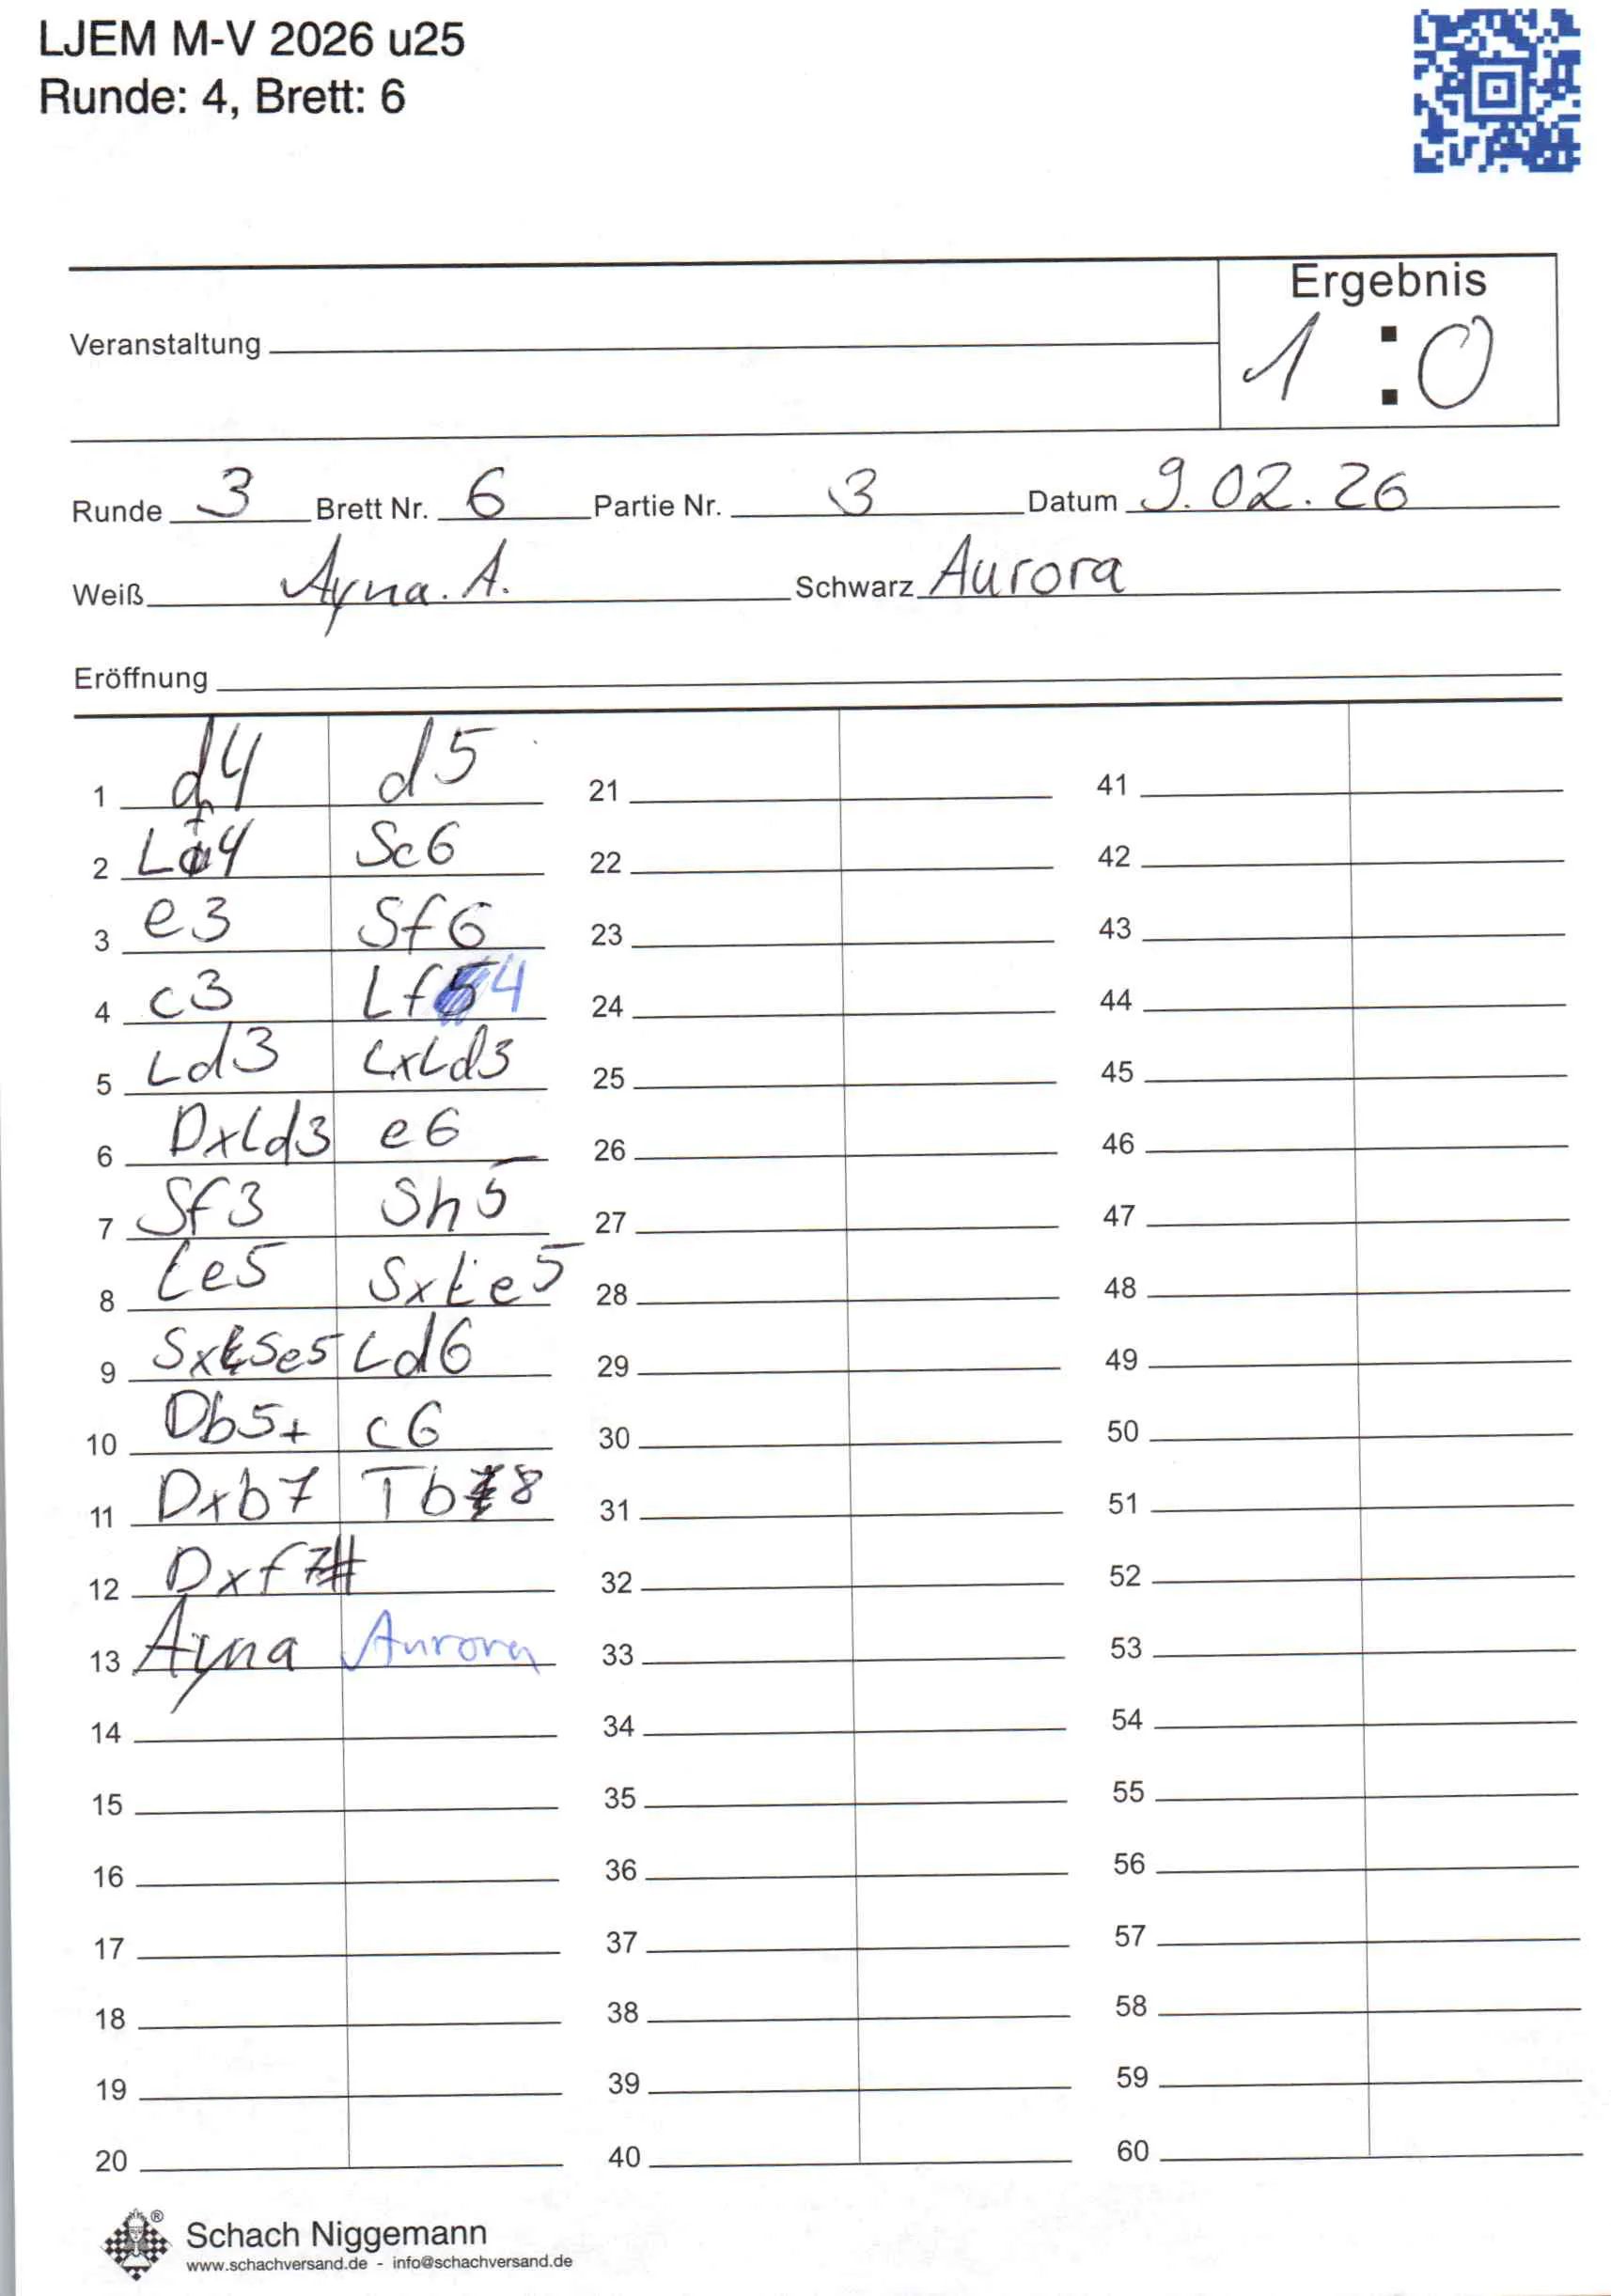 LJEM M-V 2026 u25
Runde: 4, Brett: 6
Ergebnis
1 : 0
Veranstaltung
Runde 3 Brett Nr. 6 Partie Nr. 3 Datum 9.02.26
Weiß Ayna. A. Schwarz Aurora
Eröffnung
1 d4 d5 21 41
2 Lf4 Sc6 22 42
3 e3 Sf6 23 43
4 c3 Lf4 24 44
5 Ld3 LxLd3 25 45
6 DxLd3 e6 26 46
7 Sf3 Sh5 27 47
8 Le5 SxLe5 28 48
9 SxSe5 Ld6 29 49
10 Db5+ c6 30 50
11 Dxb7 Tb8 31 51
12 Dxf7# 32 52
13 Ayna Aurora 33 53
14 34 54
15 35 55
16 36 56
17 37 57
18 38 58
19 39 59
20 40 60
®
Schach Niggemann
www.schachversand.de - info@schachversand.de